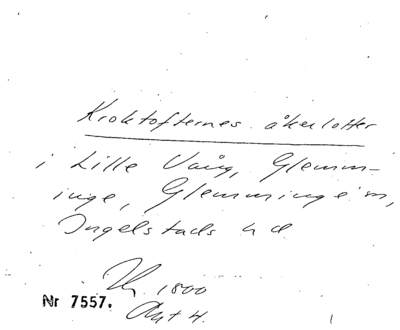 Kroktofternes åkerlotter
i Lille Vång, Glemm-
inge, Glemminge sn,
Ingelstads hd
1800
Nr 7557.
Akt 4.